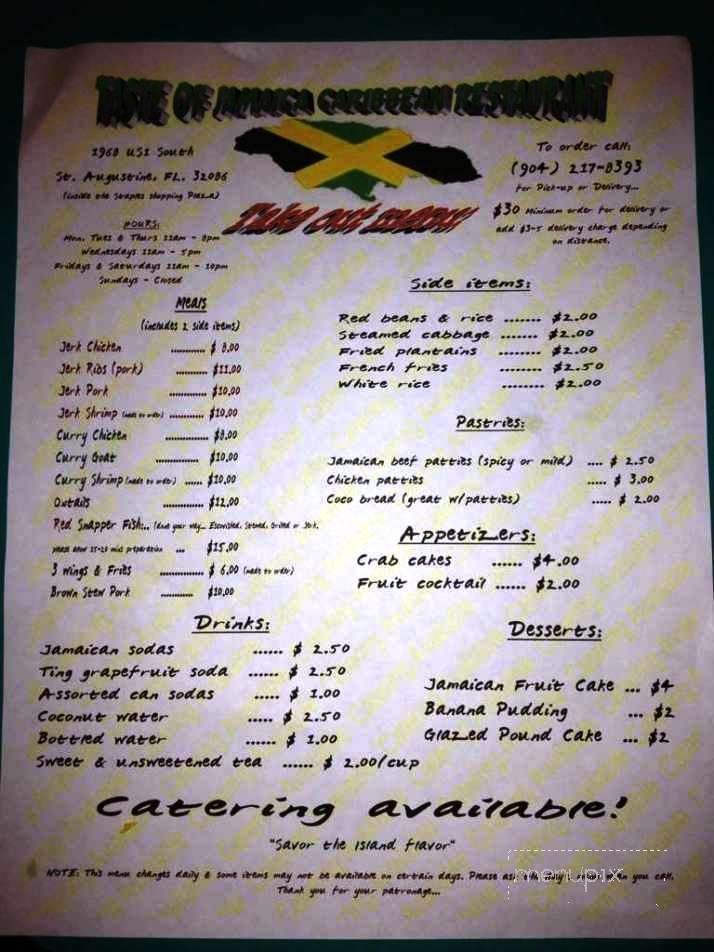 TASTE OF JAMAICA CARIBBEAN RESTAURANT
1968 US1 South
St. Augustine, FL. 32086
(inside the Staples shopping Plaza)
To order call:
(904) 217-8393
for Pick-up or Delivery...
$30 Minimum order for delivery or
add $3-5 delivery charge depending
on distance.
Take out menu!
HOURS:
Mon, Tues & Thurs 11am - 8pm
Wednesdays 11am - 5pm
Fridays & Saturdays 11am - 10pm
Sundays - Closed
Meals
(includes 2 side items)
Jerk Chicken ............ $ 8.00
Jerk Ribs (pork) ........... $11.00
Jerk Pork ............. $10.00
Jerk Shrimp (made to order) ............ $10.00
Curry Chicken ............... $8.00
Curry Goat ............... $10.00
Curry Shrimp (made to order) ...... $10.00
Oxtails ................ $12.00
Red Snapper Fish:.. (done your way... Escovished, Stewed, Grilled or Jerk,
please allow 15-20 mins preparation ... $15.00
3 wings & Fries ............... $ 6.00 (made to order)
Brown Stew Pork ........... $10.00
Side items:
Red beans & rice ....... $2.00
Steamed cabbage ....... $2.00
Fried plantains ........ $2.00
French fries ........ $2.50
White rice ........ $2.00
Pastries:
Jamaican beef patties (spicy or mild) .... $ 2.50
Chicken patties ..... $ 3.00
Coco bread (great w/patties) ..... $ 2.00
Appetizers:
Crab cakes ...... $4.00
Fruit cocktail ...... $2.00
Drinks:
Jamaican sodas ...... $ 2.50
Ting grapefruit soda ...... $ 2.50
Assorted can sodas ..... $ 1.00
Coconut water ..... $ 2.50
Bottled water ...... $ 1.00
Sweet & unsweetened tea ...... $ 2.00/cup
Desserts:
Jamaican Fruit Cake ... $4
Banana Pudding ... $2
Glazed Pound Cake ... $2
Catering available!
"Savor the Island flavor"
NOTE: This menu changes daily & some items may not be available on certain days. Please ask when you call.
Thank you for your patronage...
menupix